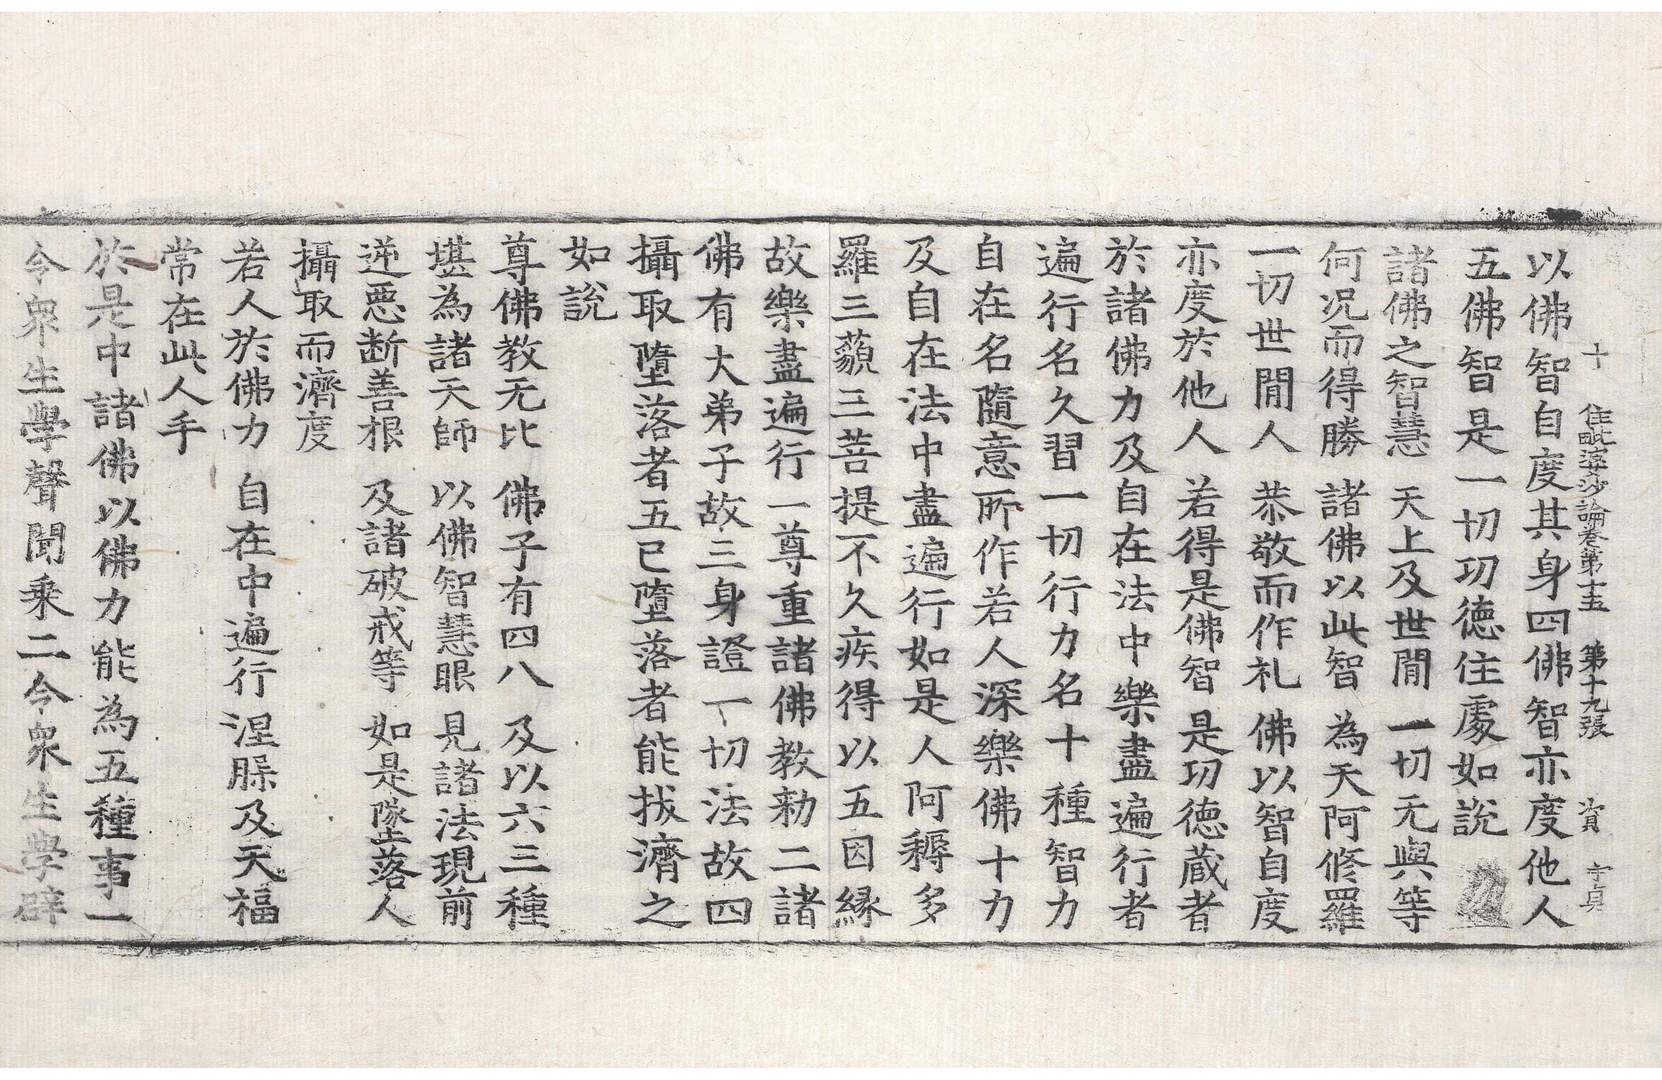 十 住毗婆沙論卷第十五 第十九張 資 子貞
以佛智自度其身四佛智亦度他人
五佛智是一切功德住處如說
諸佛之智慧 天上及世間 一切无與等
何況而得勝 諸佛以此智 為天阿修羅
一切世間人 恭敬而作礼 佛以智自度
亦度於他人 若得是佛智 是功德藏者
於諸佛力及自在法中樂盡遍行者
遍行名久習一切行力名十種智力
自在名隨意所作若人深樂佛十力
及自在法中盡遍行如是人阿耨多
羅三藐三菩提不久疾得以五因縁
故樂盡遍行一尊重諸佛教勑二諸
佛有大弟子故三身證一切法故四
攝取墮落者五已墮落者能拔濟之
如說
尊佛教无比 佛子有四八 及以六三種
堪為諸天師 以佛智慧眼 見諸法現前
逆惡断善根 及諸破戒等 如是墜落人
攝取而濟度
若人於佛力 自在中遍行 涅槃及天福
常在此人手
於是中諸佛以佛力能為五種事一
今衆生學聲聞乗二今衆生學辟